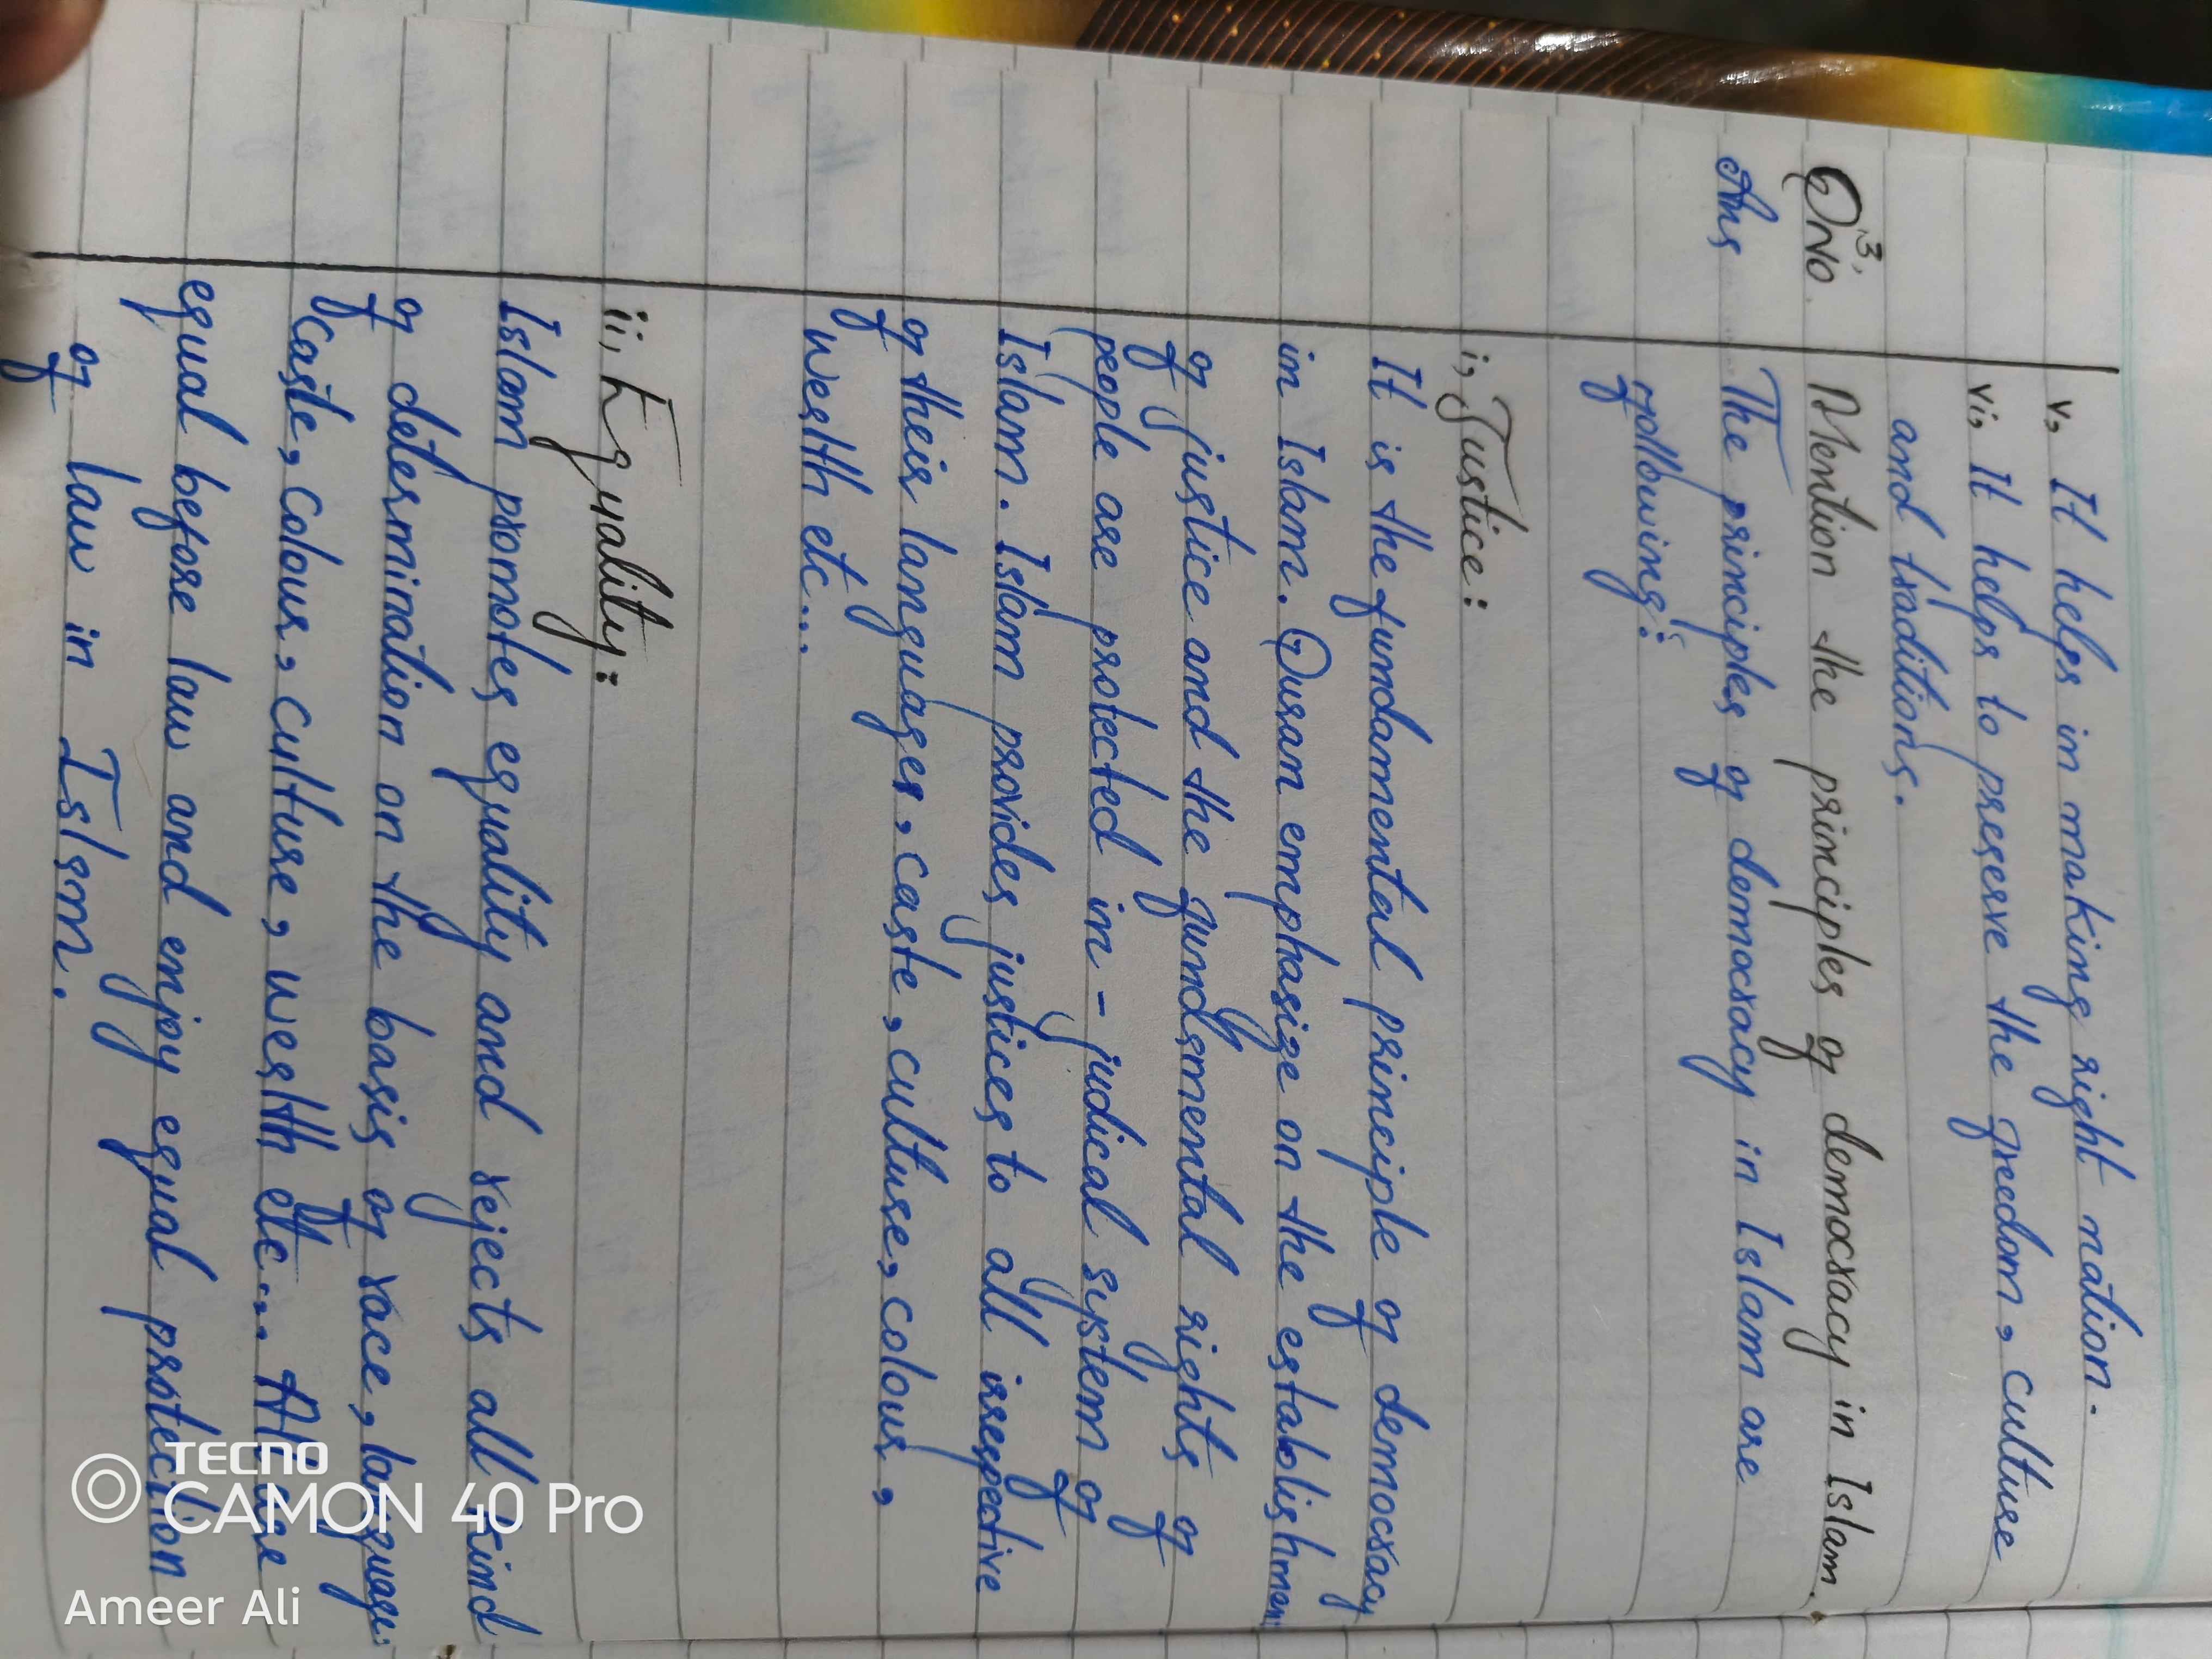 v, It helps in making right nation.
vi, It helps to preserve the freedom, culture
and traditions.
Q No 3, Mention the principles of democracy in Islam.
Ans The principles of democracy in Islam are
following:
i, Justice:
It is the fundamental principle of democracy
in Islam. Quran emphasize on the establishment
of justice and the fundamental rights of
people are protected in - judical system of
Islam. Islam provides justices to all irrespective
of their languages, caste, culture, colour,
wealth etc...
ii, Equality:
Islam promotes equality and rejects all kind
of determination on the basis of race, language,
caste, colour, culture, wealth etc... All are
equal before law and enjoy equal protection
of law in Islam.
TECNO
CAMON 40 Pro
Ameer Ali